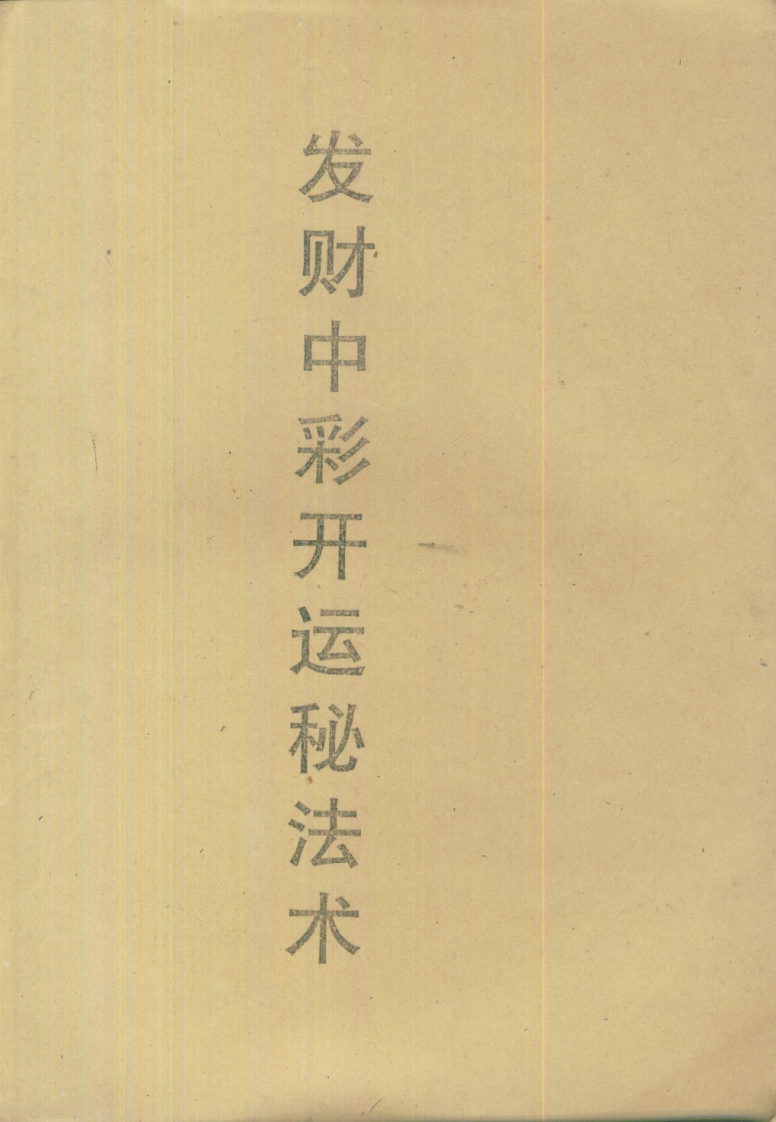 发财中彩开运秘法术